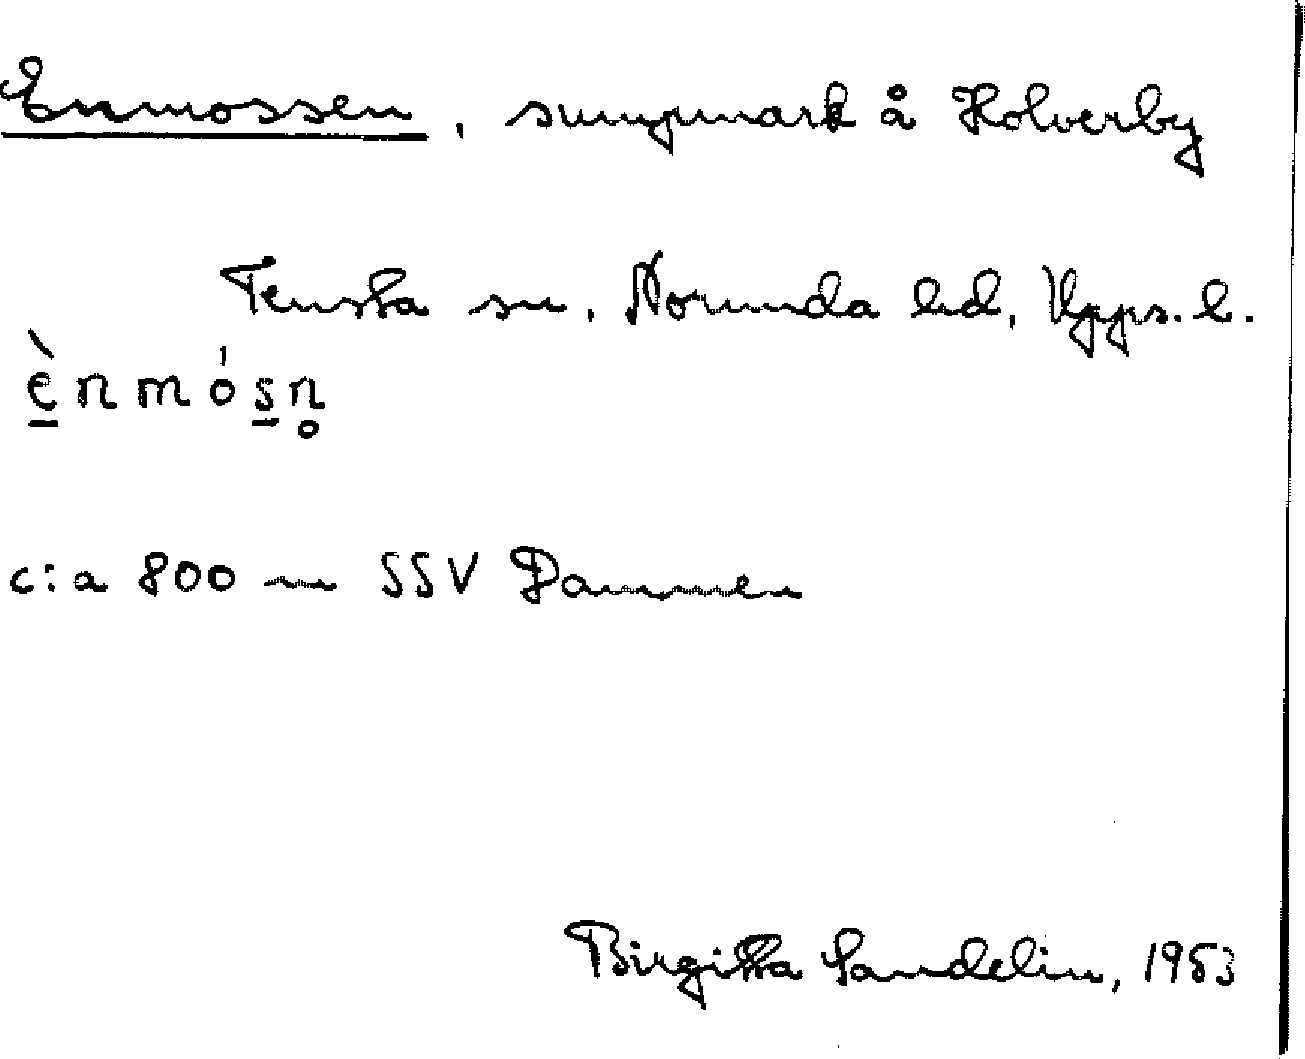 Enmossen, sumpmark å Holverby
Tensta sn. Norunda hd, Upps. l.
è̱nmós̱n̥
c:a 800 m SSV Dammen
Birgitta Sandelin, 1953